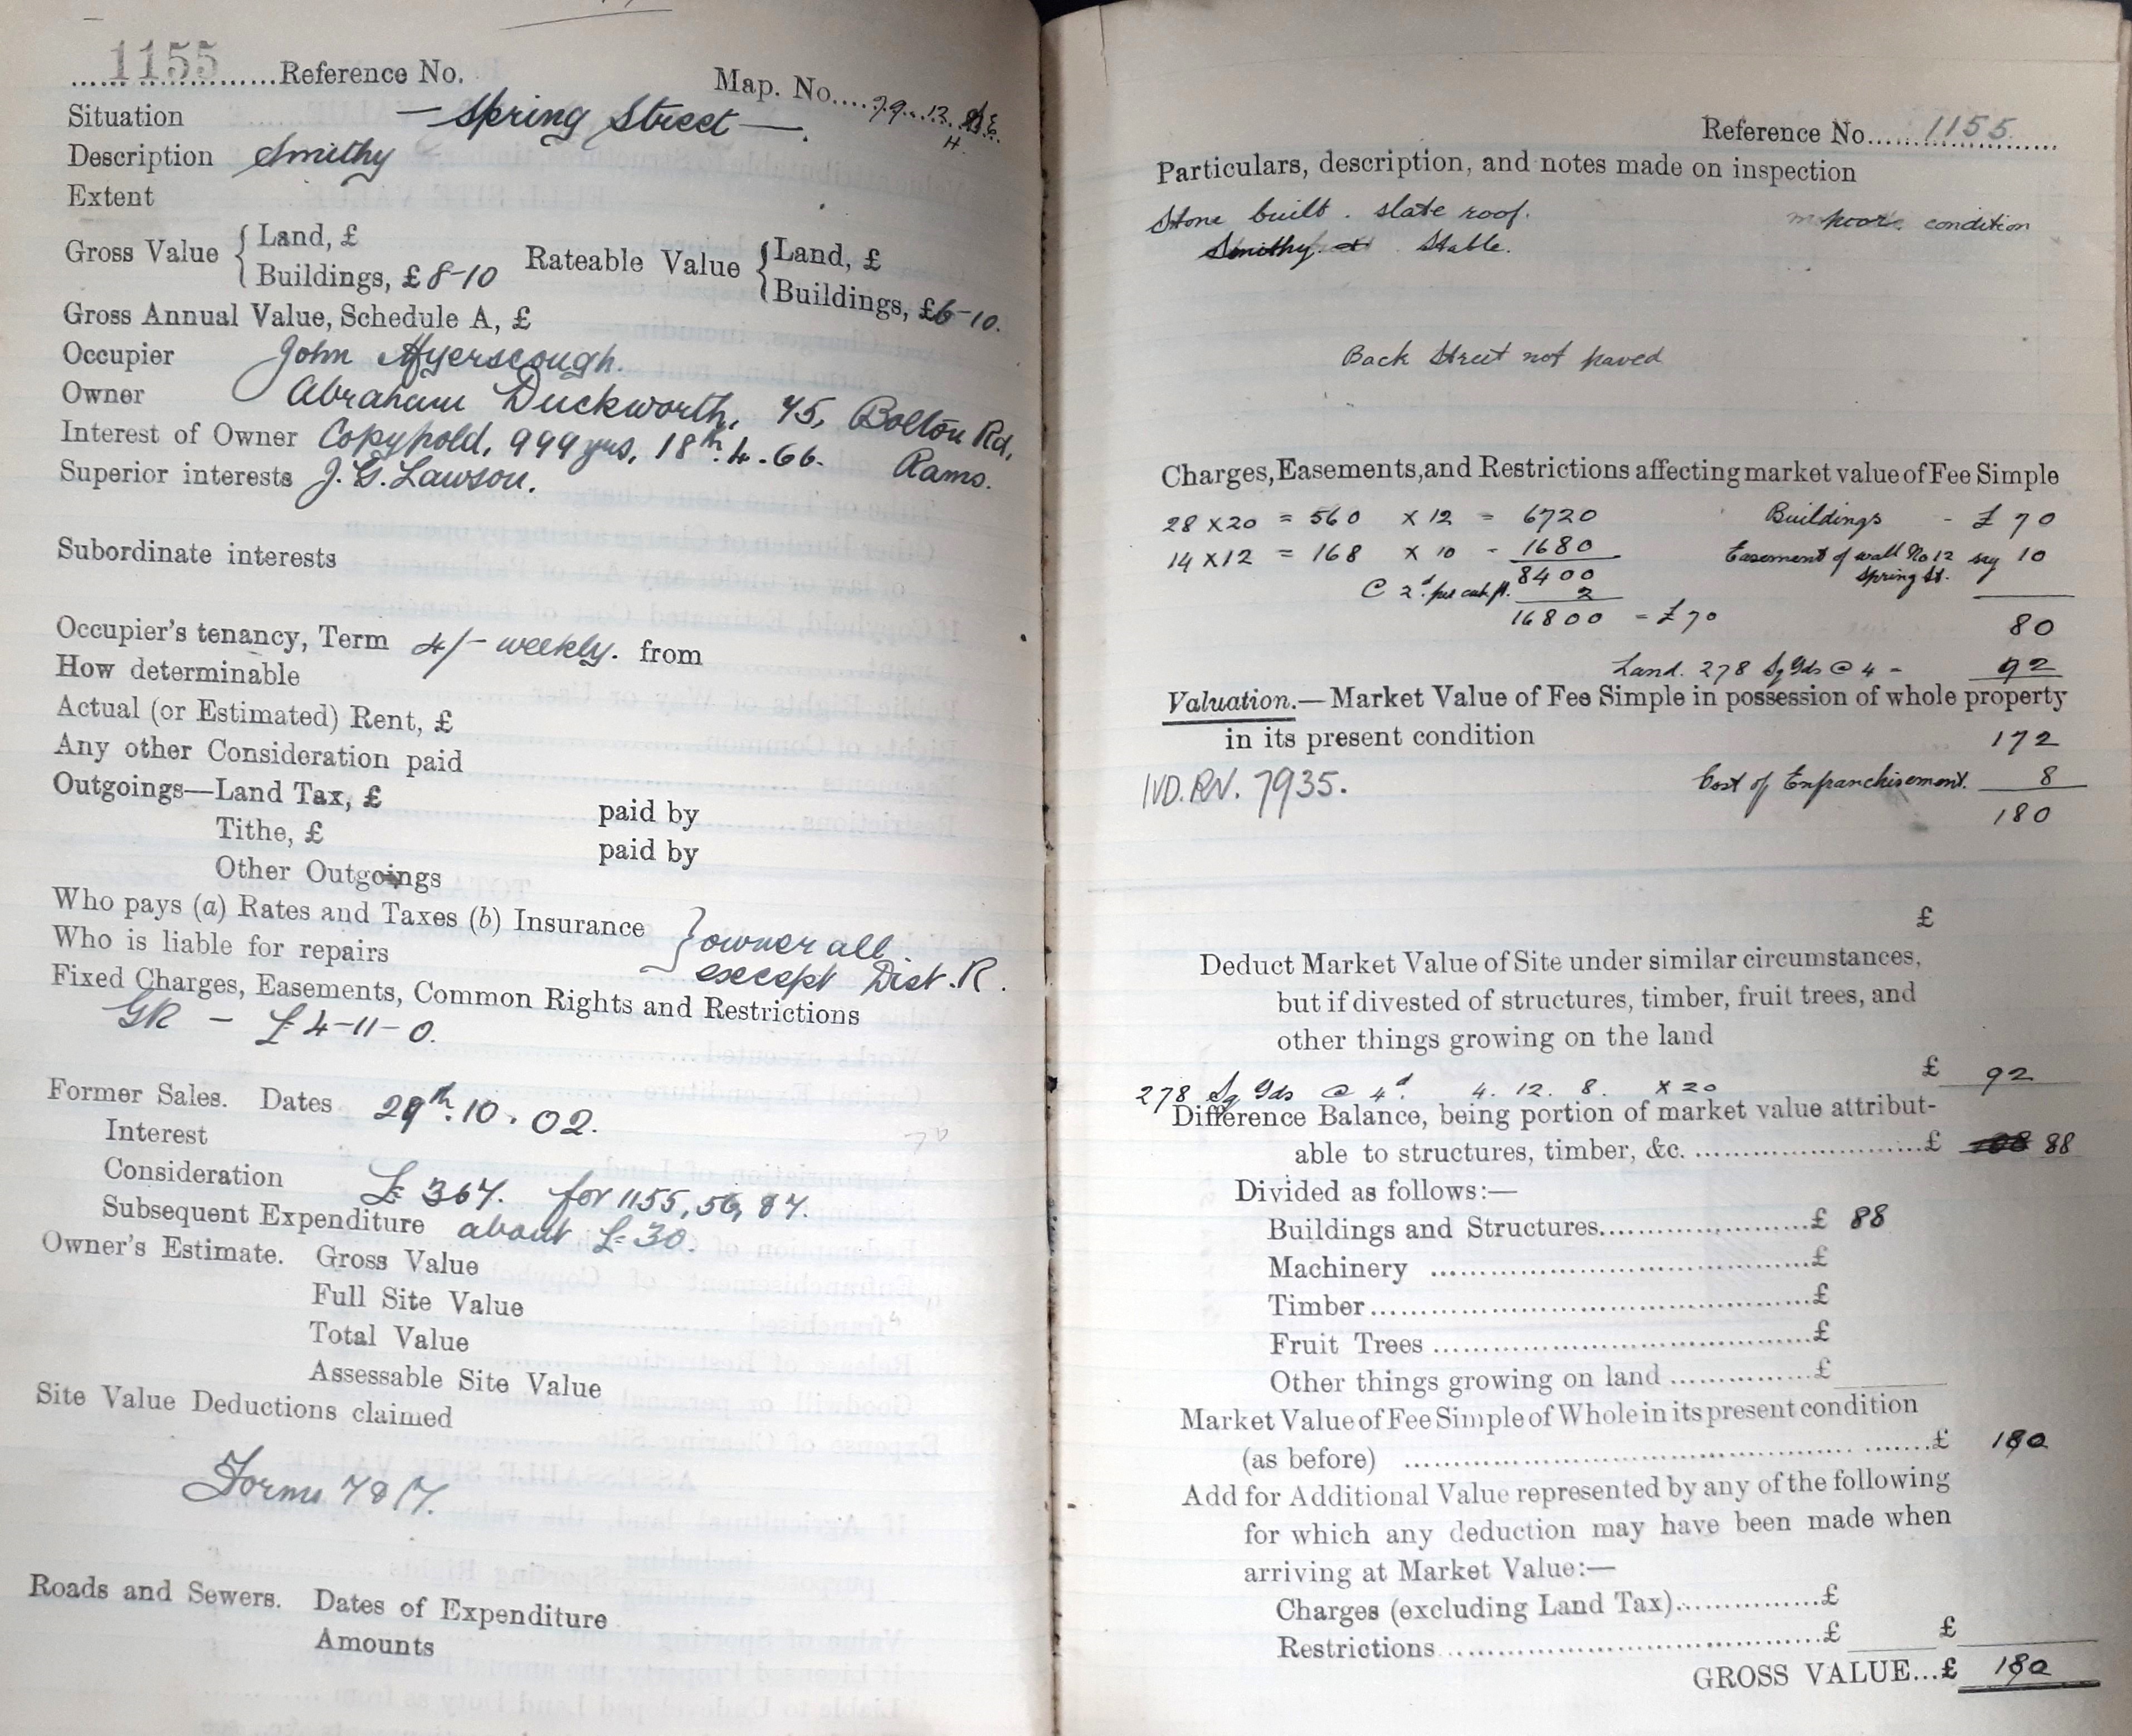 1155 Reference No. Map. No. 79.13.
H.
Situation — Spring Street —.
Description Smithy
Extent
Gross Value { Land, £
Buildings, £ 8-10
Rateable Value { Land, £
Buildings, £6-10.
Gross Annual Value, Schedule A, £
Occupier John Myerscough.
Owner Abraham Duckworth, 75, Bolton Rd,
Rams.
Interest of Owner Copyhold, 999 yrs, 18th.4.66.
Superior interests J. G. Lawson.
Subordinate interests
Occupier's tenancy, Term 4/- weekly. from
How determinable
Actual (or Estimated) Rent, £
Any other Consideration paid
Outgoings—Land Tax, £ paid by
Tithe, £ paid by
Other Outgoings
Who pays (a) Rates and Taxes (b) Insurance
Who is liable for repairs } owner all
except Dist. R.
Fixed Charges, Easements, Common Rights and Restrictions
GR - £4-11-0.
Former Sales. Dates 29th.10.02.
Interest
Consideration £367. for 1155, 56, 87.
Subsequent Expenditure about £30.
Owner's Estimate. Gross Value
Full Site Value
Total Value
Assessable Site Value
Site Value Deductions claimed
Forms 7 & 17.
Roads and Sewers. Dates of Expenditure
Amounts
Reference No. 1155
Particulars, description, and notes made on inspection
Stone built. slate roof. poor condition
Smithy. Stable.
Back Street not paved
Charges, Easements, and Restrictions affecting market value of Fee Simple
28 x 20 = 560 x 12 = 6720 Buildings - £70
14 x 12 = 168 x 10 - 1680 Easement of wall No 12 say 10
Spring St.
8400
@ 2d per cub ft. 2
16800 = £70 80
Land. 278 Sq Yds @ 4 - 92
Valuation.—Market Value of Fee Simple in possession of whole property
in its present condition 172
IVD. RN. 7935. Cost of Enfranchisement. 8
180
£
Deduct Market Value of Site under similar circumstances,
but if divested of structures, timber, fruit trees, and
other things growing on the land
£ 92
278 Sq Yds @ 4d 4. 12. 8. x 20
Difference Balance, being portion of market value attribut-
able to structures, timber, &c. £ 88
Divided as follows:—
Buildings and Structures £ 88
Machinery £
Timber £
Fruit Trees £
Other things growing on land £
Market Value of Fee Simple of Whole in its present condition
(as before) £ 180
Add for Additional Value represented by any of the following
for which any deduction may have been made when
arriving at Market Value:—
Charges (excluding Land Tax) £
Restrictions £ £
GROSS VALUE...£ 180